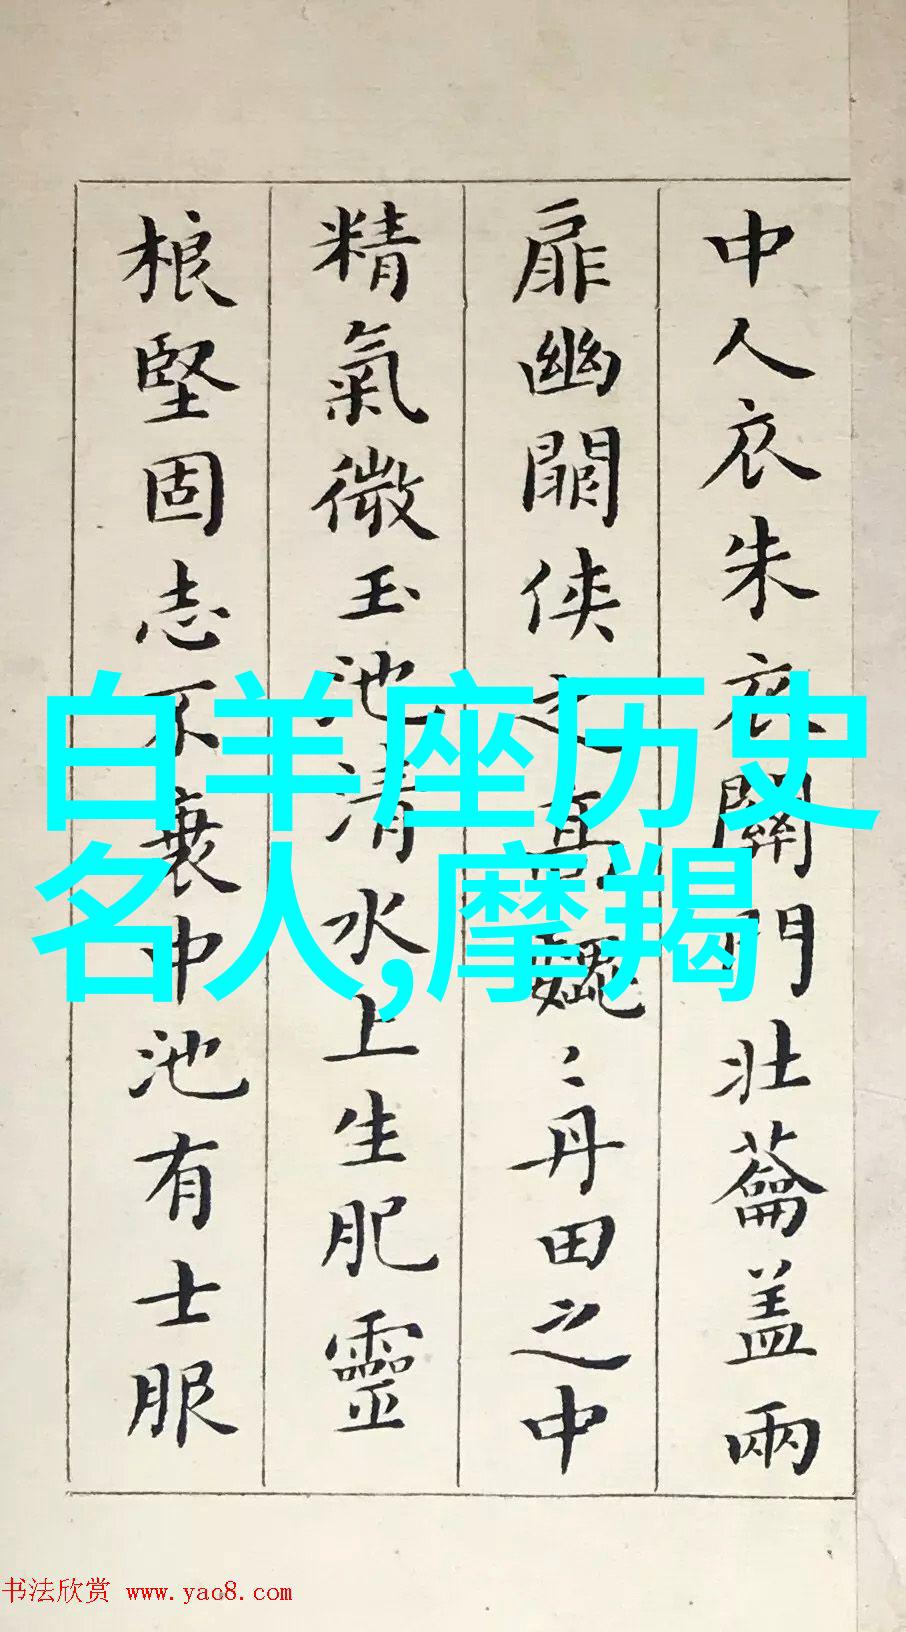 中人衣朱衣關門壯蘥盖兩
扉幽闗侠之髙巍〻丹田之中
精氣微玉池清水上生肥靈
根堅固志不衰中池有士服
白羊座历史
名人,摩羯
书法欣赏 www.yac8.com